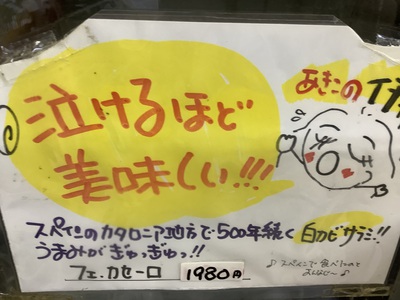 泣けるほど
美味しい!!!
あきこのイチ
スペインのカタロニア地方で500年続く 白カビサラミ!!
うまみがぎゅっぎゅっ!!
フェ.カセーロ 1980円
♪スペインで食べたのと
おんなじ〜♪